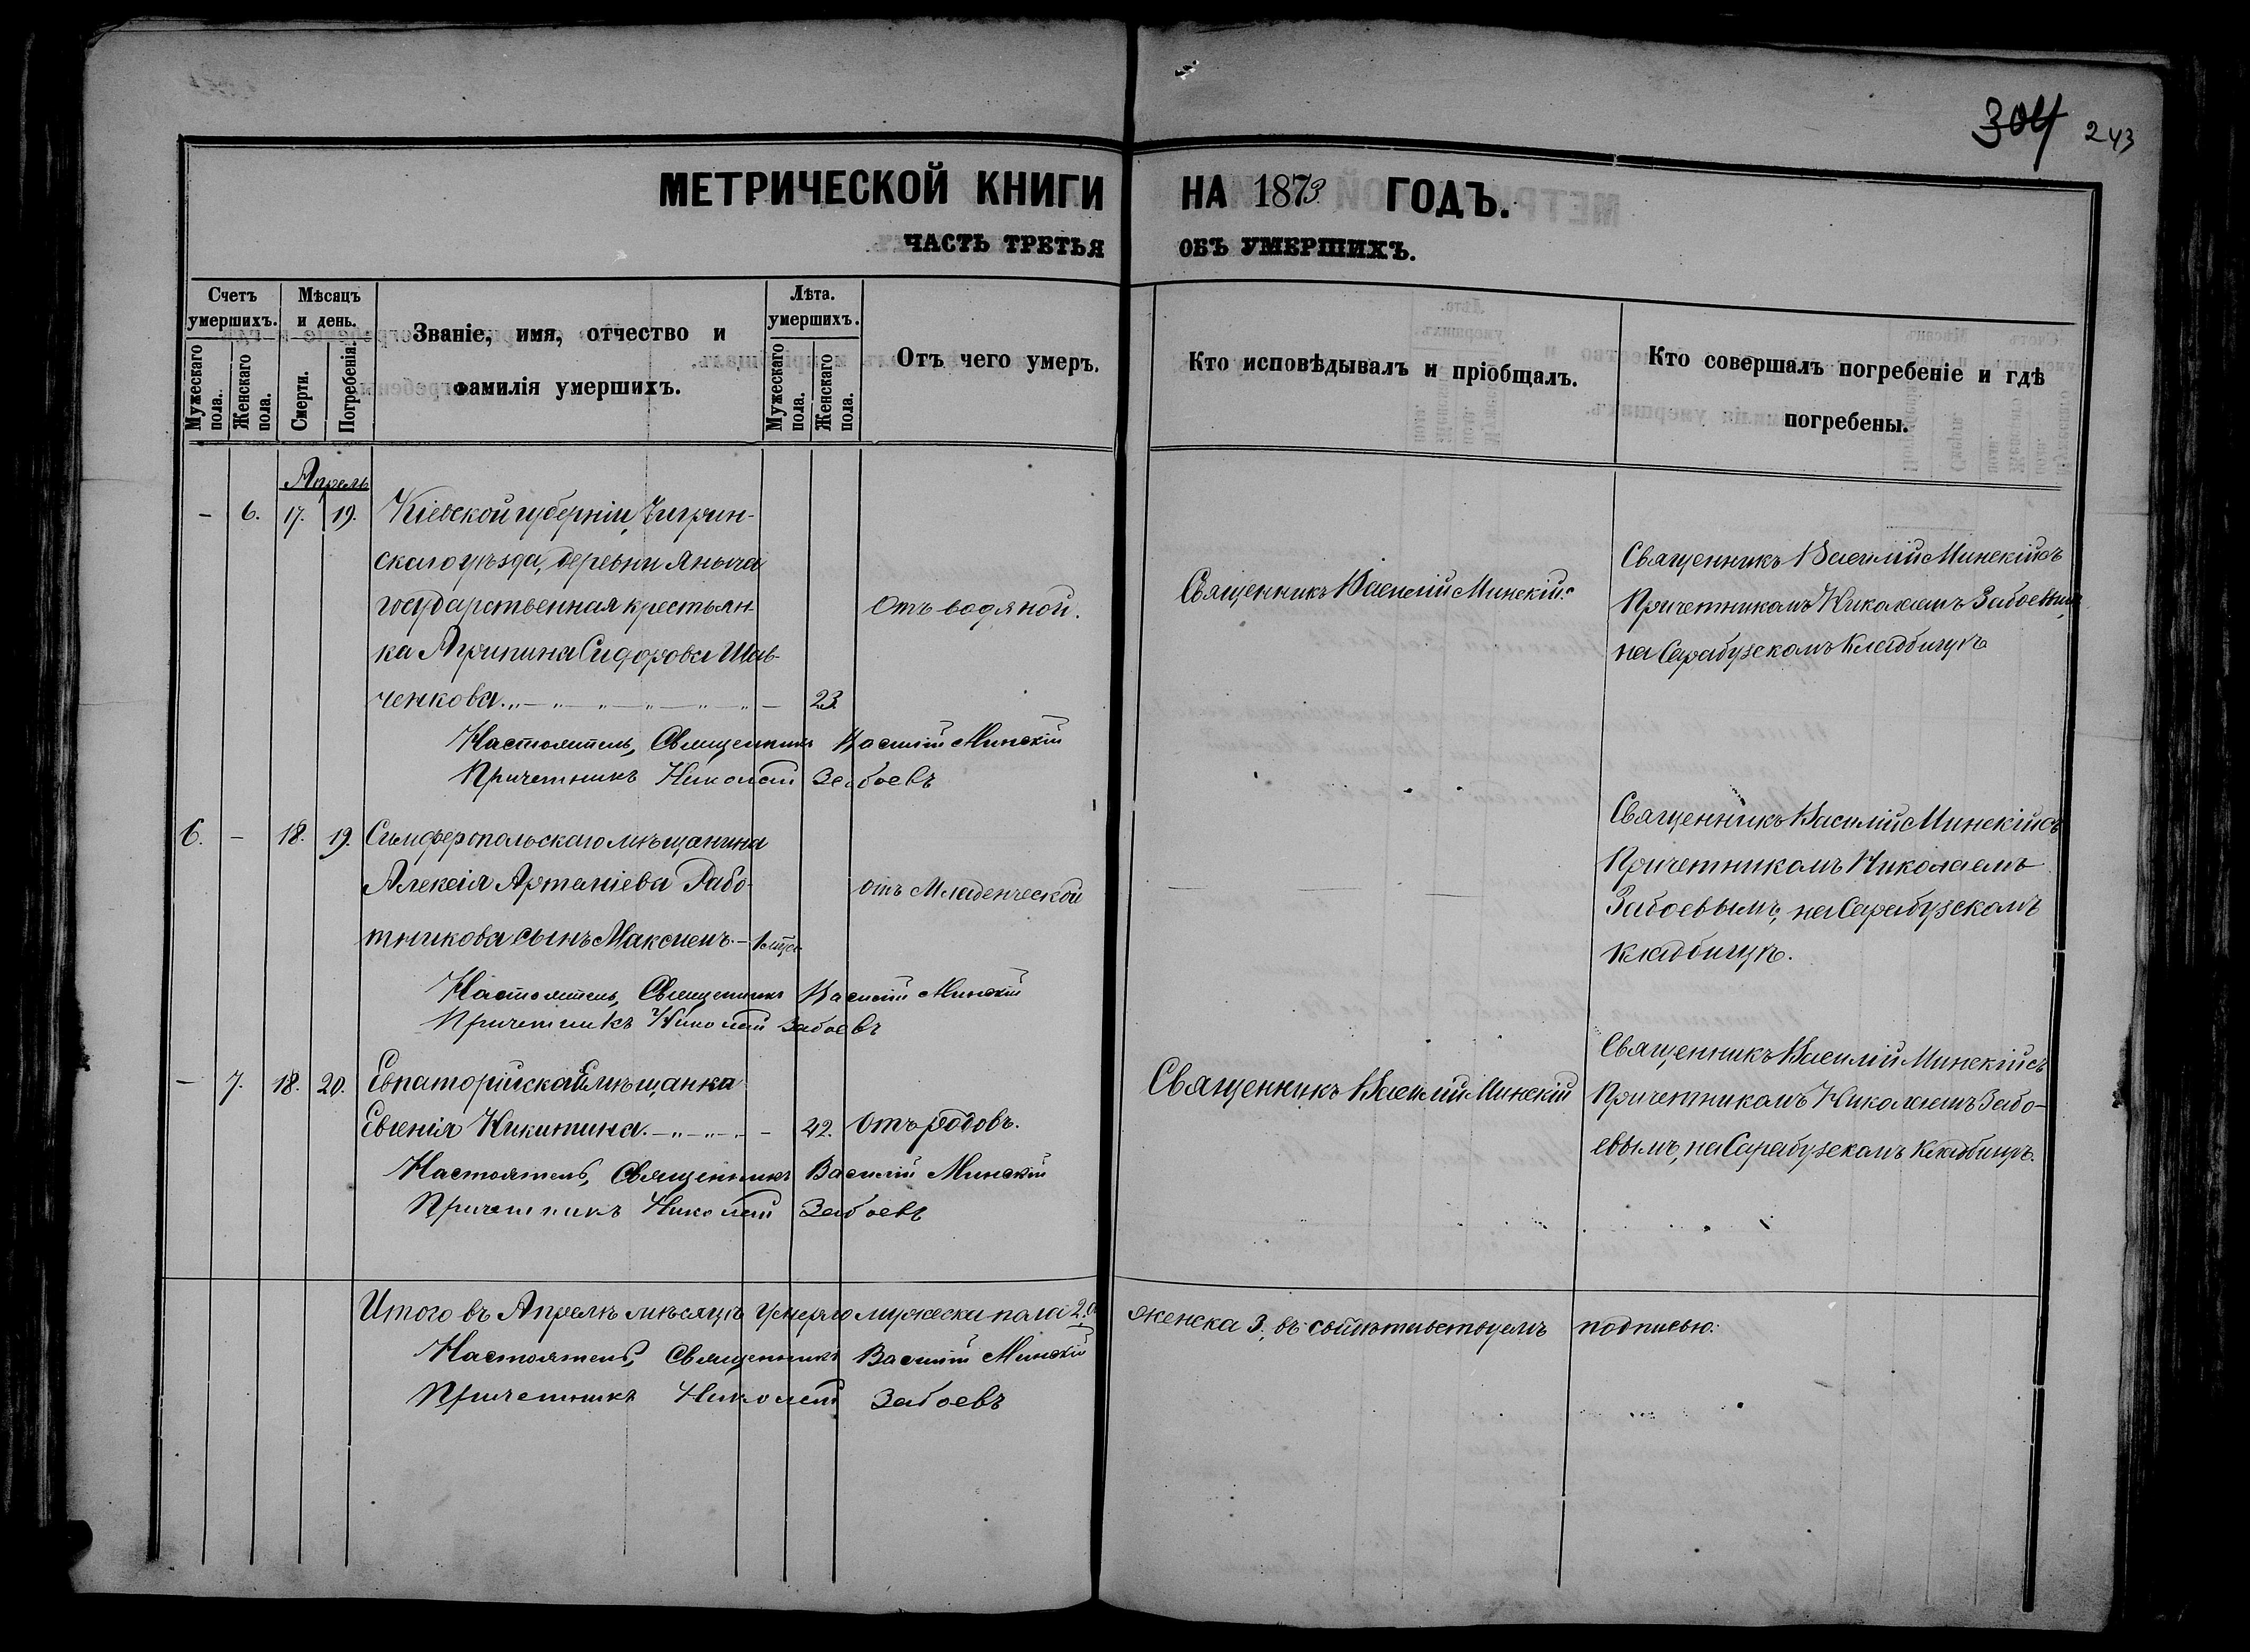 304 243
МЕТРИЧЕСКОЙ КНИГИ НА 1873 ГОДЪ.
ЧАСТЬ ТРЕТЬЯ ОБЪ УМЕРШИХЪ.
Счетъ умершихъ.
Мужескаго пола.
Женскаго пола.
Мѣсяцъ и день.
Смерти.
Погребенія.
Званіе, имя, отчество и
фамилія умершихъ.
Лѣта. умершихъ.
Мужескаго пола.
Женскаго пола.
Отъ чего умеръ.
Кто исповѣдывалъ и пріобщалъ.
Кто совершалъ погребеніе и гдѣ
погребены.
Апрель
– 6. 17. 19. Кіевской губерніи, Чигрин-
скаго уѣзда, деревни Яныча
государственная крестьян-
ка Агрипина Сидорова Шев-
ченкова. – 23.
Отъ водяной.
Священникъ Василій Минскій.
Священникъ Василій Минскій съ
Причетникомъ Николаемъ Забоевымъ,
на Сарабузскомъ Кладбищѣ
Настоятель, Священникъ Василій Минскій
Причетникъ Николай Забоевъ
6. – 18. 19. Симферопольскаго мѣщанина
Алексія Артеміева Рабо-
тникова сынъ Максимъ. – 1 мѣс.
отъ Младенческой
Священникъ Василій Минскій съ
Причетникомъ Николаемъ
Забоевымъ, на Сарабузскомъ
кладбищѣ.
Настоятель, Священникъ Василій Минскій
Причетникъ Николай Забоевъ
– 7. 18. 20. Евпаторійская мѣщанка
Евгенія Никитина. – 42. Отъ родовъ.
Священникъ Василій Минскій
Священникъ Василій Минскій съ
Причетникомъ Николаемъ Забо-
евымъ, на Сарабузскомъ Кладбищѣ.
Настоятель, Священникъ Василій Минскій
Причетникъ Николай Забоевъ
Итого въ Апрелѣ мѣсяцѣ умерло мужеска пола 2, а женска 3, въ подписью:
Настоятель, Священникъ Василій Минскій
Причетникъ Николай Забоевъ